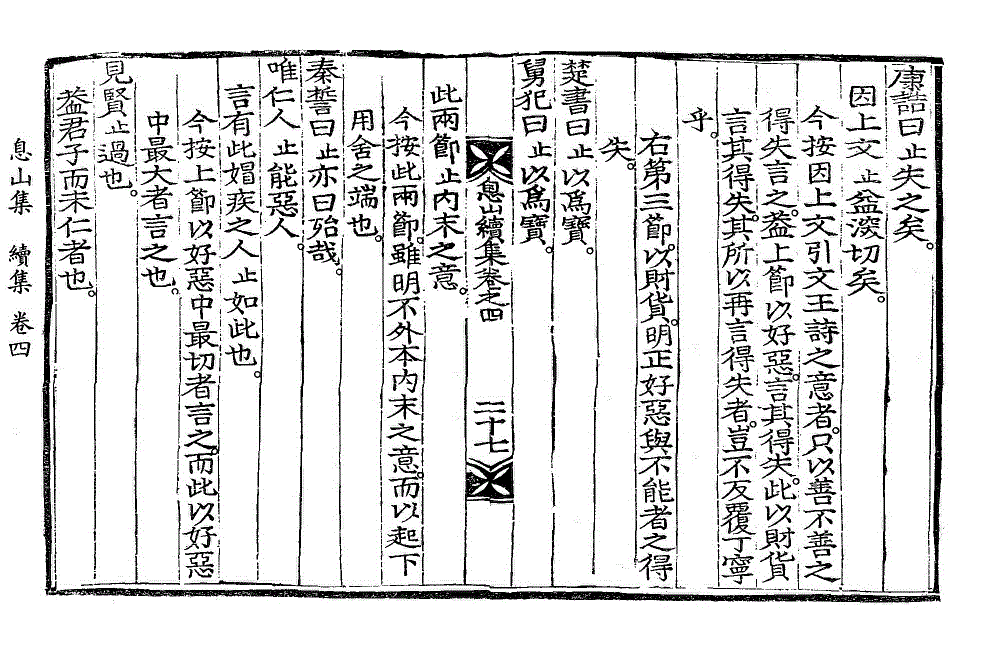 康誥曰止失之矣。
因上文止益深切矣。
今按因上文引文王詩之意者。只以善不善之
得失言之。盖上節以好惡。言其得失。此以財貨
言其得失。其所以再言得失者。豈不反覆丁寧
乎。
右第三節。以財貨。明正好惡與不能者之得
失。
楚書曰止以爲寶。
舅犯曰止以爲寶。
息山續集卷之四
二十七
此兩節止內末之意。
今按此兩節。雖明不外本內末之意。而以起下
用舍之端也。
秦誓曰止亦曰殆哉。
唯仁人止能惡人。
言有此媢疾之人止如此也。
今按上節以好惡中最切者言之。而此以好惡
中最大者言之也。
見賢止過也。
盖君子而未仁者也。
息山集 續集 卷四